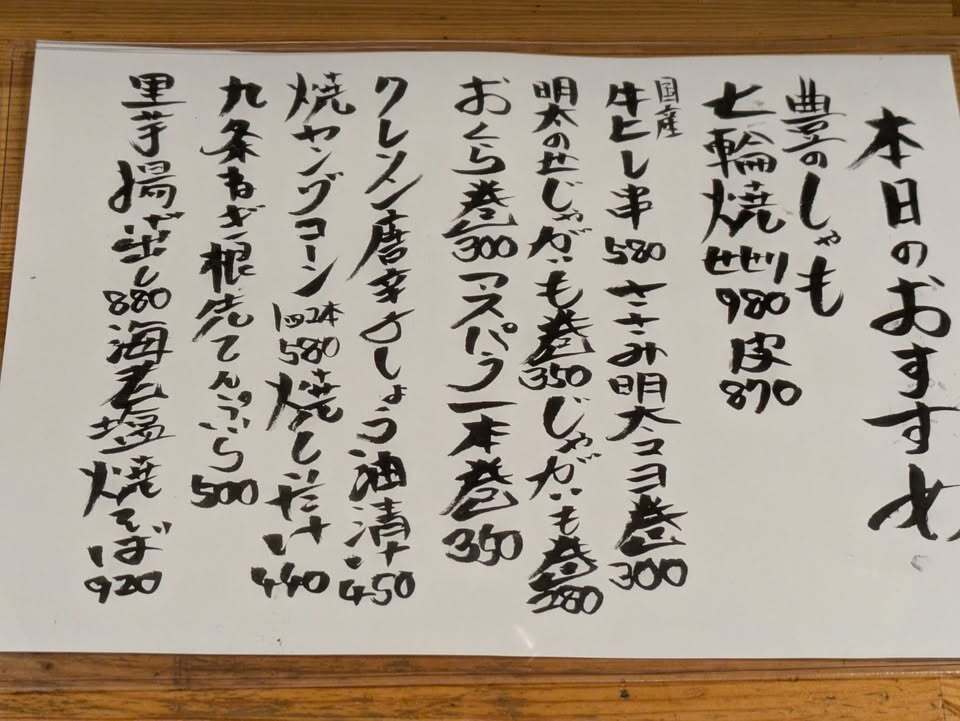 本日のおすすめ
豊のしゃも
七輪焼 せせり980 皮870
国産
牛ヒレ串580 ささみ明太マヨ巻300
明太のせじゃがいも巻350 じゃがいも巻280
おくら巻300 アスパラ一本巻350
クレソン唐辛子しょう油漬け450
焼ヤングコーン 1皿2本580 焼しいたけ440
九条ねぎ根っ子てんぷら500
里芋揚げ出し880 海老塩焼そば920